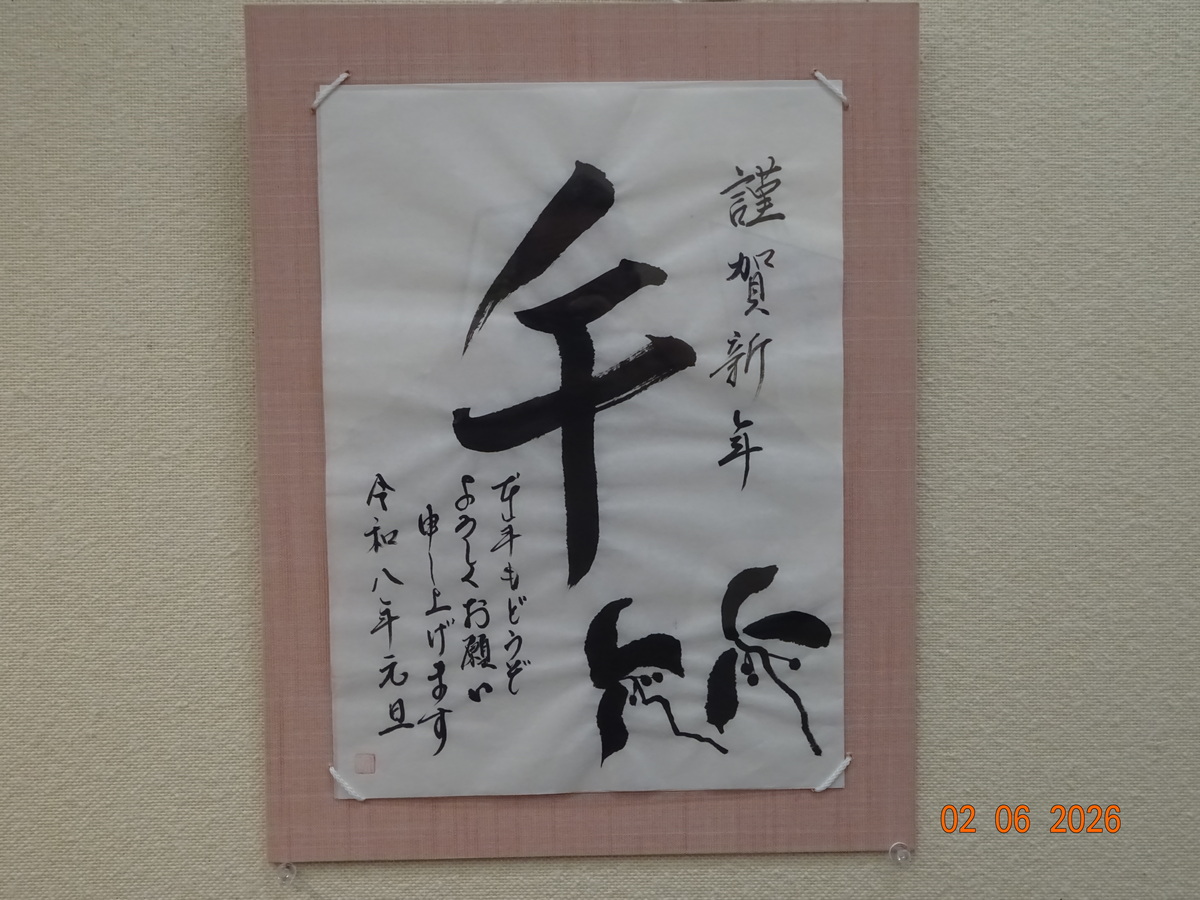 謹賀新年
午
本年もどうぞ
よろしくお願い
申し上げます
令和八年元旦
02 06 2026